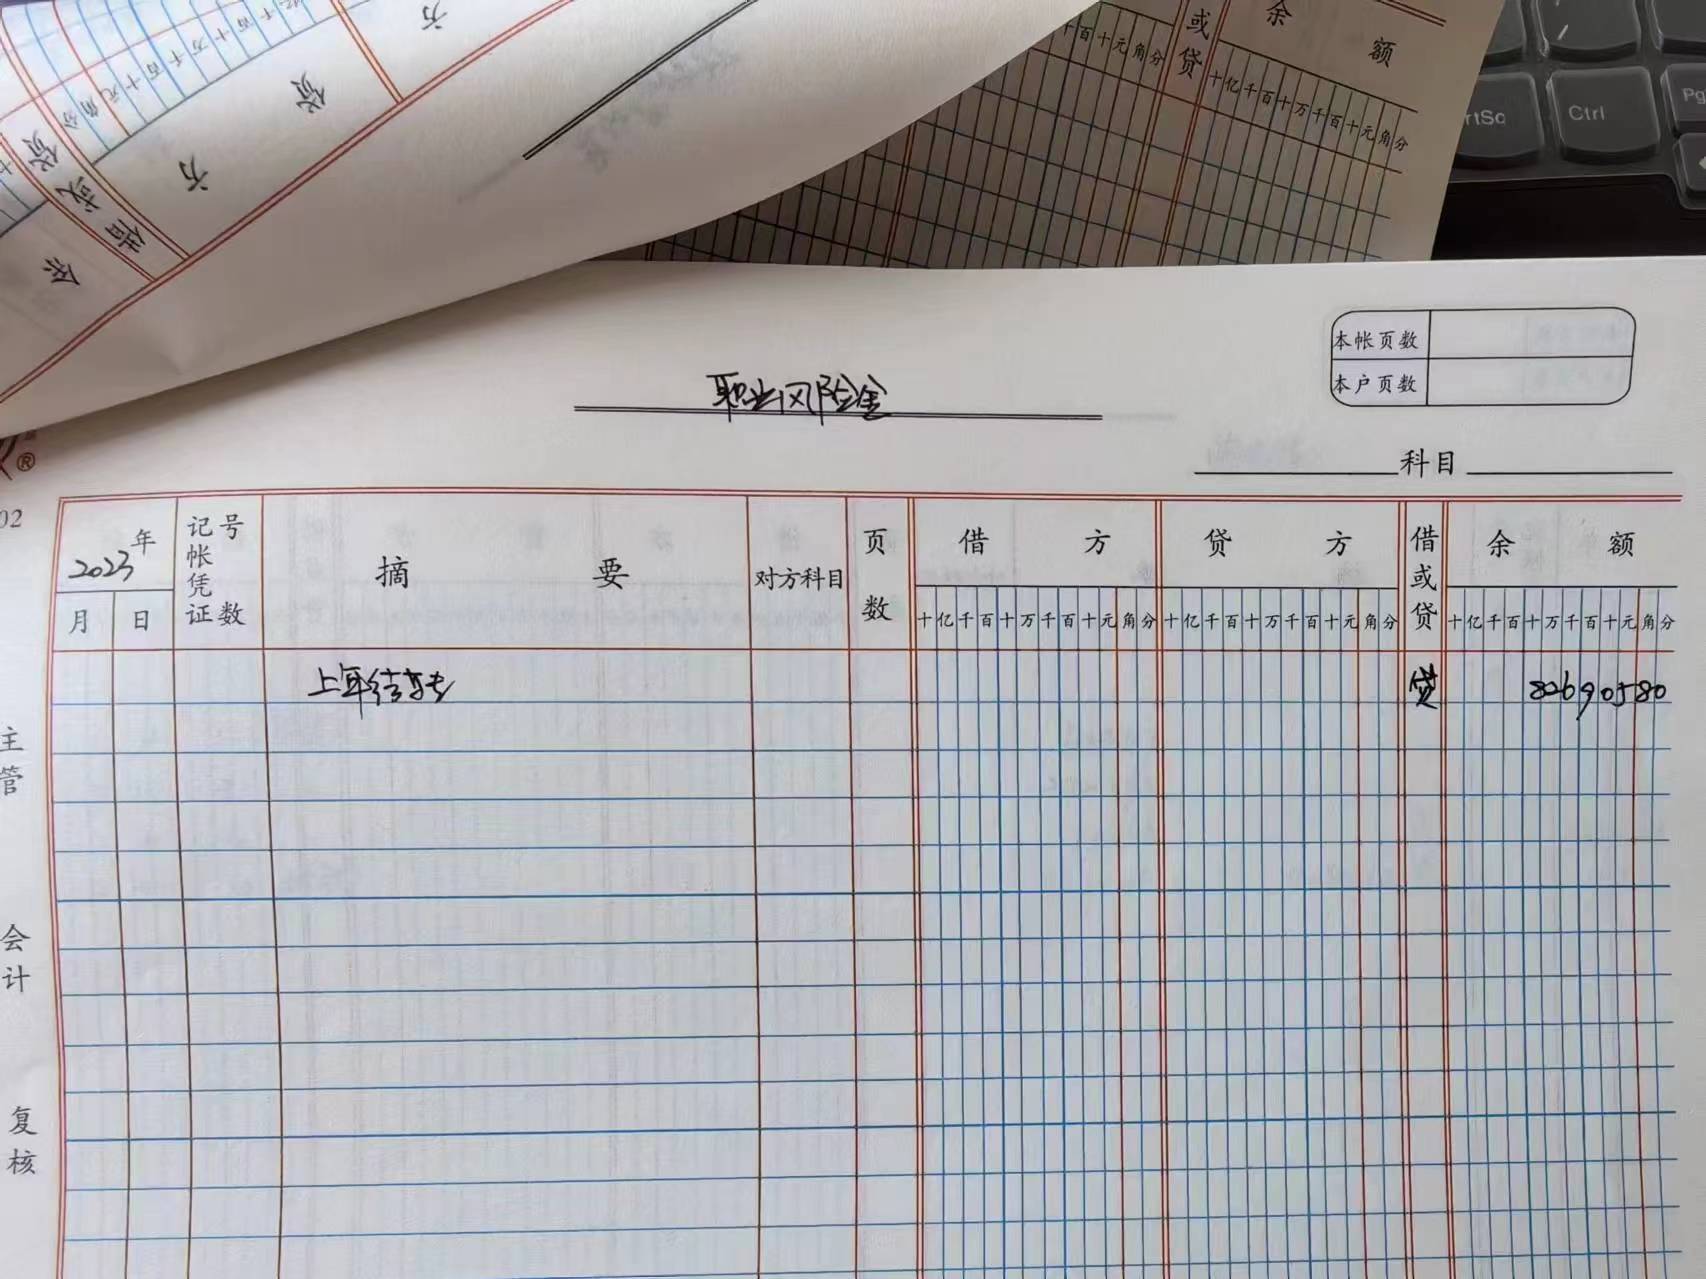 方
额
千百十万千百十元角分
额
方
贷
或
借
余
十百十元角分
或
贷
余 额
十亿千百十万千百十元角分
rtSc
Ctrl
Pg
本帐页数
本户页数
职业风险金
科目
®
02
2023年
月 日
记帐凭证
号数
摘 要
对方科目
页数
借 方
十亿千百十万千百十元角分
贷 方
十亿千百十万千百十元角分
借或贷
余 额
十亿千百十万千百十元角分
上年结转 贷 82690580
主管
会计
复核